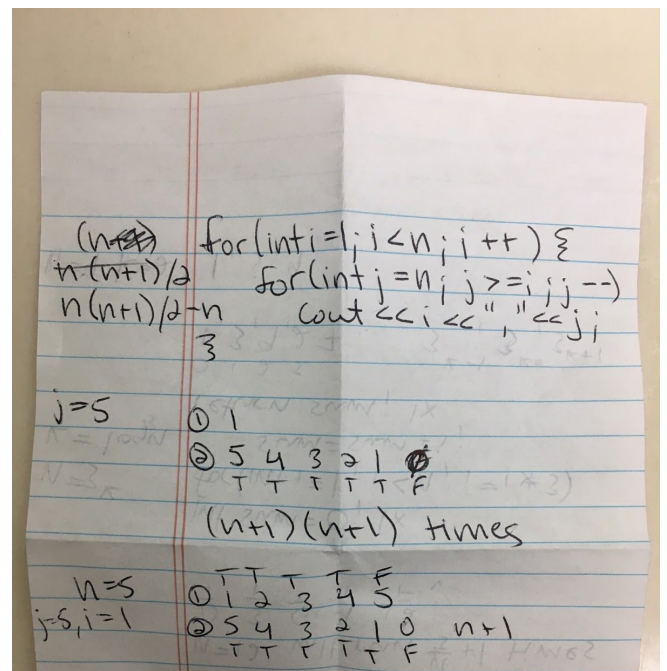 for(int i=1; i<n; i++) {
n(n+1)/2 for(int j=n; j>=i; j--)
n(n+1)/2-n cout << i << "," << j;
}
j=5 ① 1
② 5 4 3 2 1
T T T T T F
(n+1)(n+1) times
T T T T F
n=5 ① 1 2 3 4 5
j=5, i=1 ② 5 4 3 2 1 0 n+1
T T T T T F